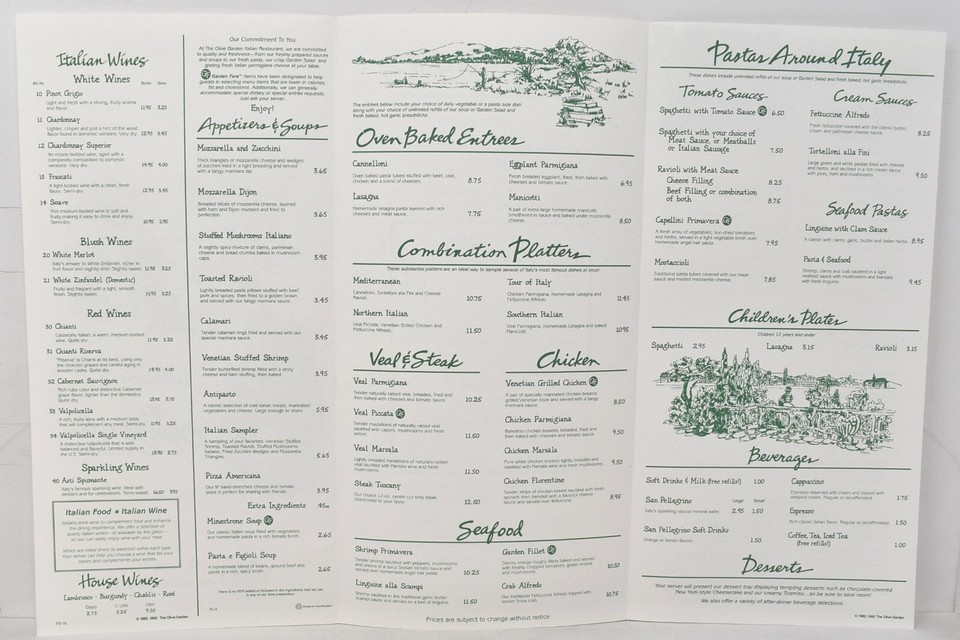 Italian Wines
White Wines
Bin No. Bottle Glass
10 Pinot Grigio
Light and fresh with a strong, fruity aroma
and flavor. 11.95 3.25
11 Chardonnay
Lighter, crisper and just a hint of the wood
flavor found in domestic versions. Very dry. 12.95 3.45
12 Chardonnay Superior
An estate-bottled wine, aged with a
complexity comparable to domestic
versions. Very dry. 14.95 4.00
13 Frascati
A light-bodied wine with a clean, fresh
flavor. Semi-dry. 12.95 3.45
14 Soave
This medium-bodied wine is soft and
fruity, making it easy to drink and enjoy.
Semi-dry. 10.95 2.95
Blush Wines
20 White Merlot
Italy's answer to White Zinfandel, richer in
fruit flavor and slightly drier. Slightly sweet. 11.95 3.25
21 White Zinfandel (Domestic)
Fruity and fragrant with a light, smooth
finish. Slightly sweet. 11.95 3.25
Red Wines
30 Chianti
Classically Italian, a warm, medium-bodied
wine. Quite dry. 11.95 3.25
31 Chianti Riserva
"Riserva" is Chianti at its best, using only
the choicest grapes and careful aging in
wooden casks. Quite dry. 14.95 4.00
32 Cabernet Sauvignon
Rich ruby color and distinctive Cabernet
grape flavor, lighter than the domestics.
Quite dry.
33 Valpolicella
A rich, fruity wine with a medium body
that will complement any meal. Semi-dry. 11.95 3.25
34 Valpolicella Single Vineyard
A distinctive Valpolicella that is well
balanced and flavorful. Limited supply in
the U.S. Semi-dry. 13.95 3.75
Sparkling Wines
40 Asti Spumante
Italy's famous sparkling wine, ideal with
dessert and for celebrations. Semi-sweet.
Italian Food • Italian Wine
Italians drink wine to complement food and enhance
the dining experience. We offer a selection of
quality Italian wines—all available by the glass—
so you can easily enjoy wine with your meal.
Wines are listed driest to sweetest within each type.
Your server can help you choose a wine that fits your
tastes and complements your entree.
House Wines
Lambrusco - Burgundy - Chablis - Rosé
Glass ½ Liter Liter
2.75 5.25 9.50
© 1982, 1992 The Olive Garden
Our Commitment To You
At The Olive Garden Italian Restaurant, we are committed
to quality and freshness—from our freshly prepared sauces
and soups to our fresh pasta, our crisp Garden Salad and
grating fresh Italian parmigiana cheese at your table.
Garden Fare™ items have been designed to help
guests in selecting menu items that are lower in calories,
fat and cholesterol. Additionally, we can generally
accommodate special dietary or special entrée requests.
Just ask your server.
Enjoy!
Appetizers & Soups
Mozzarella and Zucchini
Thick triangles of mozzarella cheese and wedges
of zucchini fried in a light breading and served
with a tangy marinara dip. 3.65
Mozzarella Dijon
Breaded slices of mozzarella cheese, layered
with ham and Dijon mustard and fried to
perfection. 3.65
Stuffed Mushrooms Italiano
A slightly spicy mixture of clams, parmesan
cheese and bread crumbs baked in mushroom
caps. 3.95
Toasted Ravioli
Lightly breaded pasta pillows stuffed with beef,
pork and spices, then fried to a golden brown
and served with our tangy marinara sauce. 3.45
Calamari
Tender calamari rings fried and served with our
special marinara sauce. 3.45
Venetian Stuffed Shrimp
Tender butterflied shrimp filled with a zesty
cheese and ham stuffing, then baked. 3.95
Antipasto
A classic selection of cold Italian meats, marinated
vegetables and cheese. Large enough to share. 5.95
Italian Sampler
A sampling of your favorites: Venetian Stuffed
Shrimp, Toasted Ravioli, Stuffed Mushrooms
Italiano, Fried Zucchini Wedges and Mozzarella
Triangles 5.65
Pizza Americana
Our 9" hand-stretched cheese and tomato
pizza is perfect for sharing with friends. 3.95
Extra Ingredients .45ea.
Minestrone Soup
Our classic Italian soup filled with vegetables
and homemade pasta in a rich tomato broth. 2.65
Pasta e Figioli Soup
A homemade blend of beans, ground beef and
pasta in a rich, spicy broth. 2.65
There is no MSG added or included in the ingredients that we use
in any of our food preparation.
The entrées below include your choice of daily vegetable or a pasta side dish
along with your choice of unlimited refills of our soup or Garden Salad and
fresh baked, hot garlic breadsticks.
Oven Baked Entrees
Cannelloni
Oven baked pasta tubes stuffed with beef, veal,
chicken and a blend of cheeses. 8.75
Lasagna
Homemade lasagna pasta layered with rich
cheeses and meat sauce. 7.75
Eggplant Parmigiana
Fresh breaded eggplant, fried, then baked with
cheeses and tomato sauce. 6.95
Manicotti
A pair of extra large homemade manicotti,
smothered in sauce and baked under mozzarella
cheese. 8.50
Combination Platters
These substantial platters are an ideal way to sample several of Italy's most famous dishes at once!
Mediterranean
Cannelloni, Tortelloni alla Fini and Cheese
Ravioli. 10.75
Northern Italian
Veal Piccata, Venetian Grilled Chicken and
Fettuccine Alfredo. 11.50
Tour of Italy
Chicken Parmigiana, homemade Lasagna and
Fettuccine Alfredo. 11.45
Southern Italian
Veal Parmigiana, homemade Lasagna and baked
Manicotti. 10.95
Veal & Steak
Veal Parmigiana
Tender naturally-raised veal, breaded, fried and
then baked with cheeses and tomato sauce 10.25
Veal Piccata
Tender medallions of naturally-raised veal
sautéed with capers, mushrooms and fresh
lemon. 11.50
Veal Marsala
Lightly breaded medallions of naturally-raised
veal sautéed with Marsala wine and fresh
mushrooms. 11.50
Steak Tuscany
Our choice 12-oz. center cut strip steak
charbroiled to your taste. 12.50
Chicken
Venetian Grilled Chicken
A pair of specially marinated chicken breasts
grilled Venetian style and served with a tangy
sauce. 8.50
Chicken Parmigiana
Boneless chicken breasts, breaded, fried and
then baked with cheeses and tomato sauce. 9.50
Chicken Marsala
Pure white chicken breasts lightly breaded and
sautéed with Marsala wine and fresh mushrooms. 9.50
Chicken Florentine
Tender strips of chicken breast sautéed with fresh
spinach then blended with a flavorful cheese
sauce and served over fettuccine. 8.95
Seafood
Shrimp Primavera
Tender shrimp sautéed with peppers, mushrooms
and onions in a spicy Sicilian tomato sauce and
served over homemade angel hair pasta. 10.25
Linguine alla Scampi
Shrimp sautéed in the traditional garlic butter
scampi sauce and served on a bed of linguine. 11.50
Garden Fillet
Savory orange roughy fillets baked and served
with freshly chopped tomatoes, green onions
and mushrooms. 10.50
Crab Alfredo
Our traditional Fettuccine Alfredo topped with
tender Snow crab. 10.75
Prices are subject to change without notice.
Pastas Around Italy
These dishes include unlimited refills of our soup or Garden Salad and fresh baked, hot garlic breadsticks.
Tomato Sauces
Spaghetti with Tomato Sauce 6.50
Spaghetti with your choice of
Meat Sauce, or Meatballs
or Italian Sausage 7.50
Ravioli with Meat Sauce
Cheese Filling 8.25
Beef Filling or combination
of both 8.75
Capellini Primavera
A fresh array of vegetables, sun-dried tomatoes
and herbs, served in a light vegetable broth over
homemade angel hair pasta 7.95
Mostaccioli
Traditional pasta tubes covered with our meat
sauce and melted mozzarella cheese. 7.85
Cream Sauces
Fettuccine Alfredo
Fresh fettuccine covered with the classic butter,
cream and parmesan cheese sauce. 8.25
Tortelloni alla Fini
Large green and white pastas filled with cheese
and herbs, and sautéed in a rich cream sauce
with peas, ham and mushrooms. 9.50
Seafood Pastas
Linguine with Clam Sauce
A classic with clams, garlic, butter and Italian herbs 8.95
Pasta & Seafood
Shrimp, clams and crab sautéed in a light
seafood sauce with mushrooms and blended
with fresh linguine. 9.45
Children's Plates
Children 12 years and under
Spaghetti 2.95 Lasagna 3.15 Ravioli 3.15
Beverages
Soft Drinks & Milk (free refills!) 1.00
San Pellegrino Large Small
Italy's sparkling natural mineral water. 2.95 1.50
San Pellegrino Soft Drinks
Orange or lemon flavors. 1.50
Cappuccino
Espresso steamed with cream and topped with
whipped cream. Regular or decaffeinated 1.75
Espresso
Rich classic Italian flavor. Regular or decaffeinated 1.50
Coffee, Tea, Iced Tea
(free refills!) 1.00
Desserts
Your server will present our dessert tray displaying tempting desserts such as chocolate covered
New York-style Cheesecake and our creamy Tiramisu ...so be sure to save room!
We also offer a variety of after-dinner beverage selections
© 1982, 1992 The Olive Garden